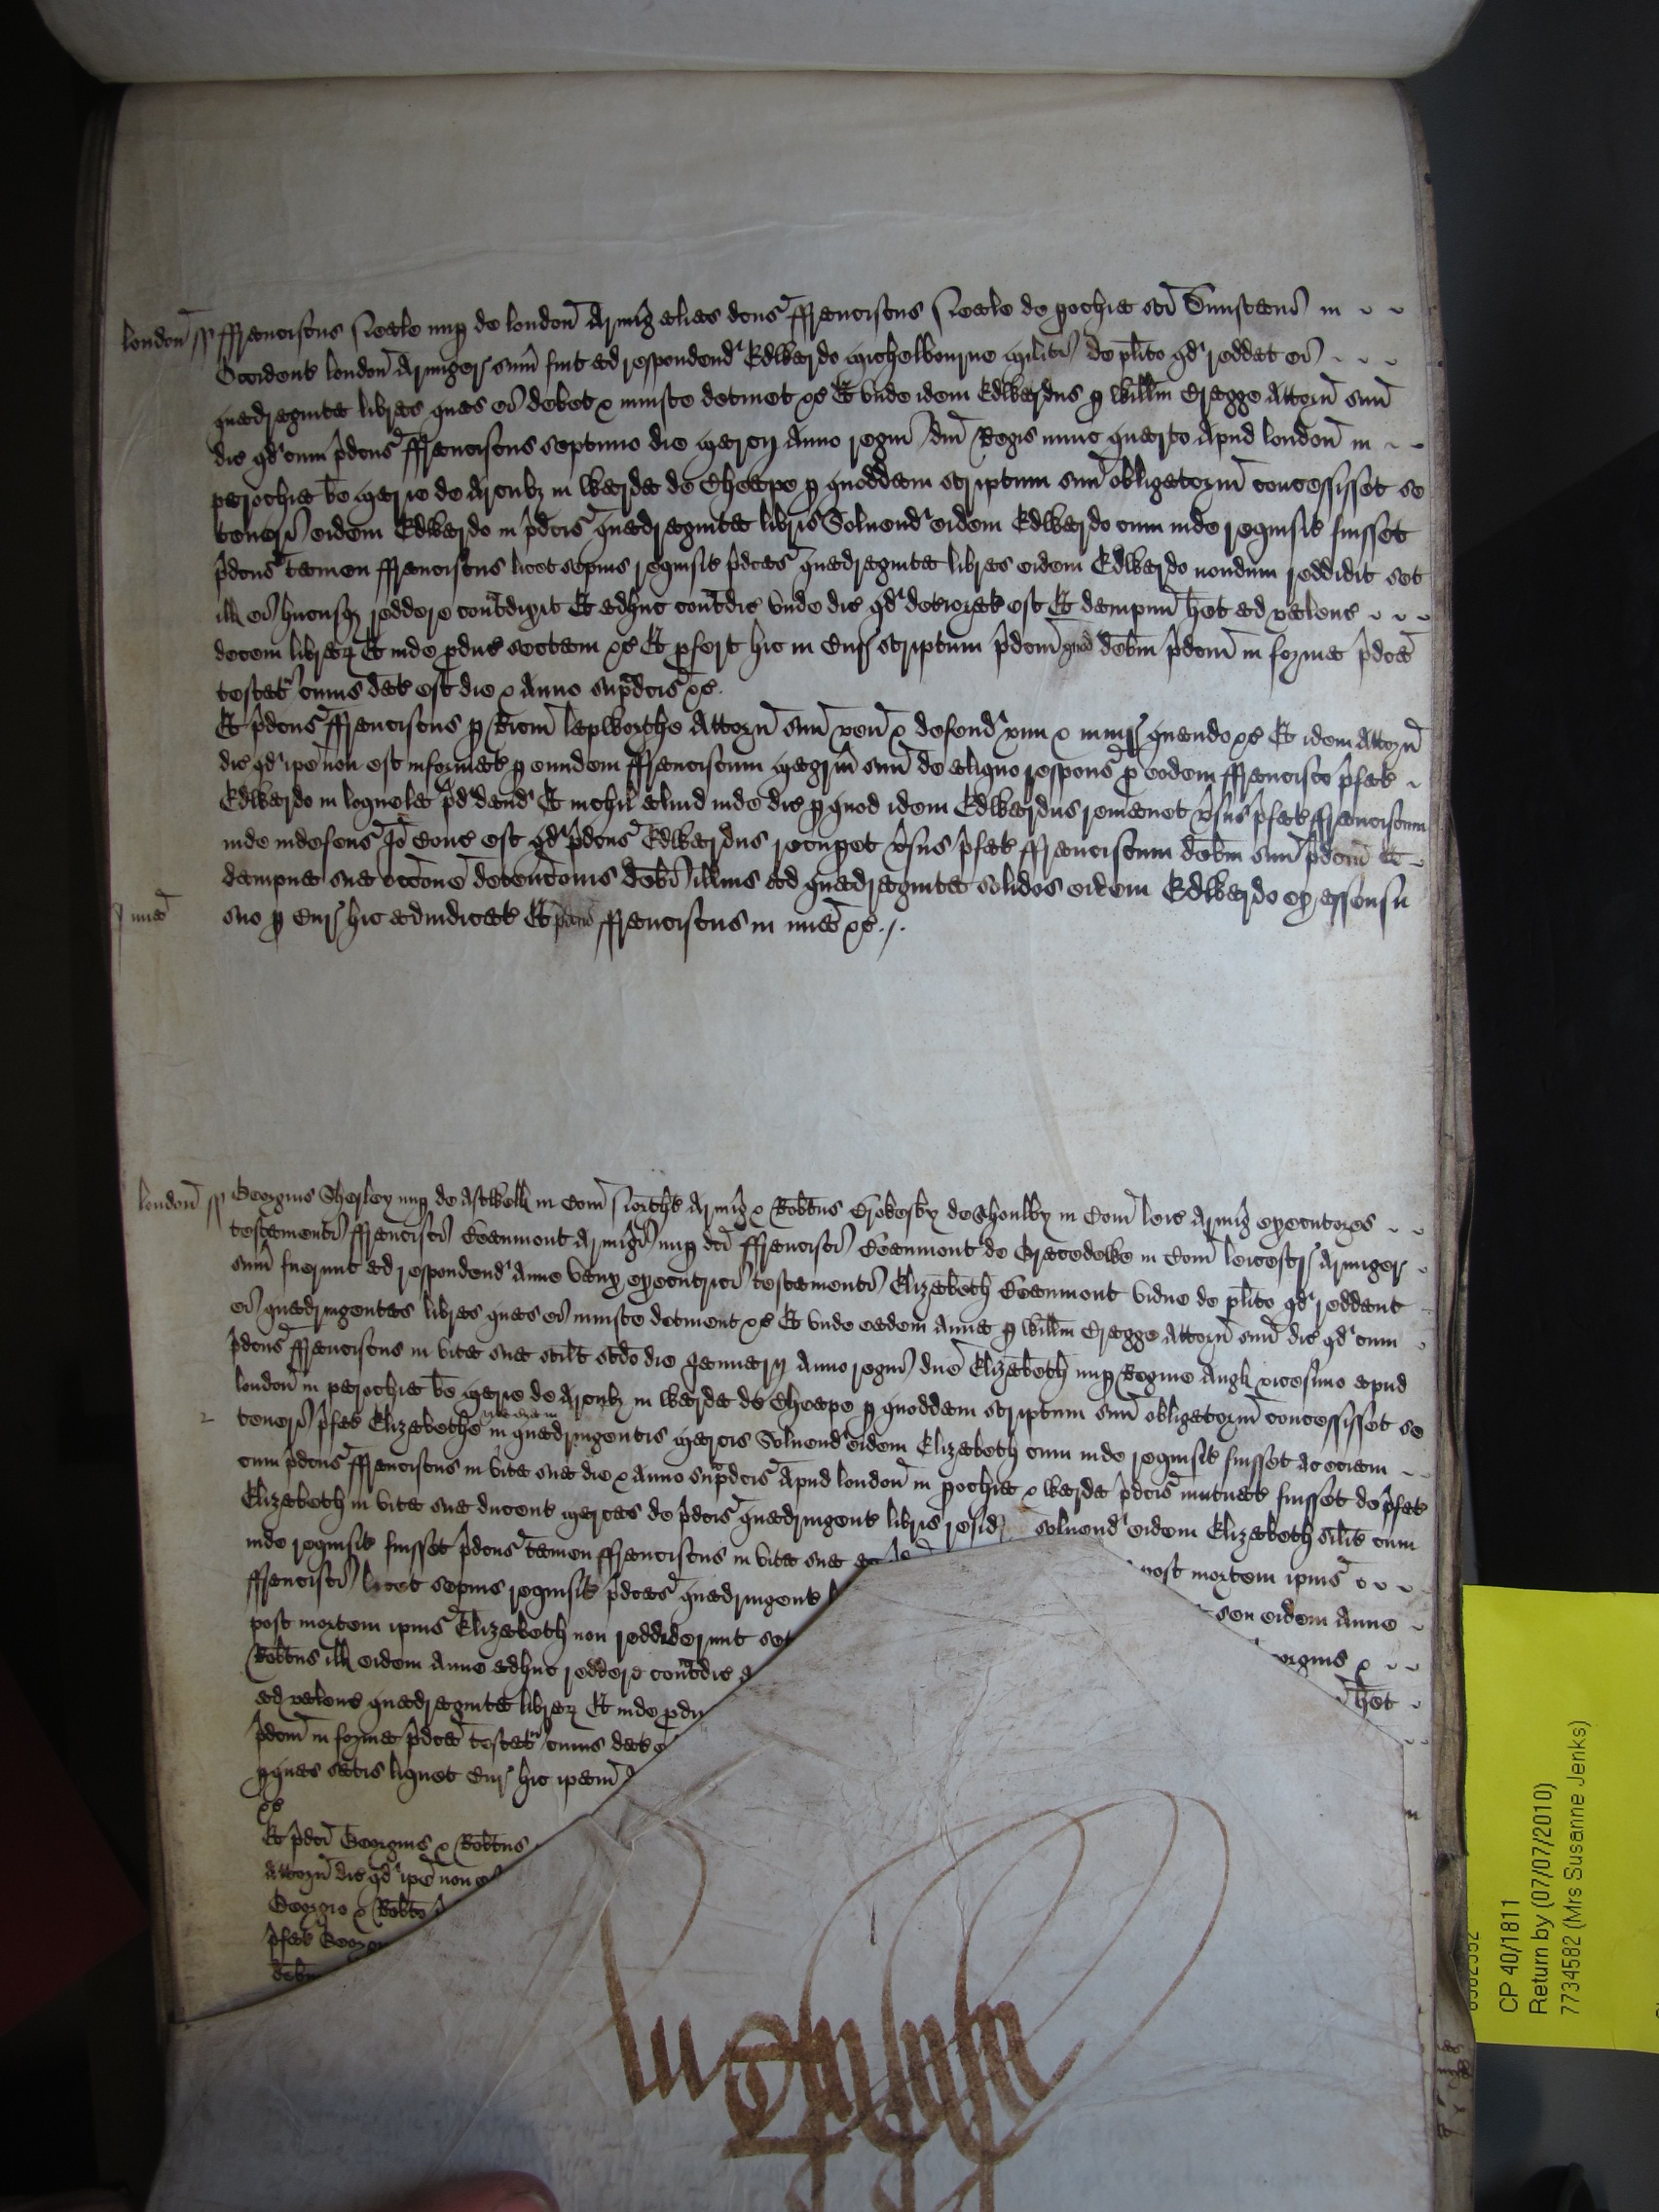 london̄ ss ffranciscus Neale nup de london̄ Armig̃ alias dcus ffranciscus Neale de pochia sc̄i Dunstani in
Occident london̄ Armiger sum̄ fuit ad respondend Edwardo Michelborne Militi de plito qd reddat ei
quadraginta libras quas ei debet & iniuste detinet &c Et unde idem Edwardus p Willm Gragge Attorn̄ sum̄
dic qd cum p̄dcus ffranciscus septimo die Marcij Anno regni dn̄i Regis nunc quarto Apud london̄ in
parochia be Marie de Arcub3 in Warda de Cheape p quoddam scriptum suum obligatorium concessisset se
teneri eidem Edwardo in p̄dcis quadraginta libris Solvend eidem Edwardo cum inde requisit fuisset
p̄dcus tamen ffranciscus licet sepius requisit p̄dcas quadraginta libras eidem Edwardo nondum reddidit set
ill ei hucusq3 reddere cont̃dixit Et adhuc cont̃dic Unde dic qd deteriorat est Et dampnu h̄et ad valenc
decem librar Et inde pduc sectam &c Et pfert hic in Cur scriptum p̄dcm̄ quod debm p̄dcm̄ in forma p̄dca
testat cuius dat est die & Anno sup̄dcis &c
Et p̄dcus ffranciscus p Ricm̄ lepworthe Attorn̄ sum̄ ven̄ & defend vim & iniur quando &c Et idem Attorn̄
dic qd ip̄e non est informat p eundem ffranciscum Magrm̄ sum̄ de aliquo respons p eodem ffrancisco p̄fat
Edwardo in loquela p̄d dand Et nichil aliud inde dic p quod idem Edwardus remanet v̄sus p̄fat ffranciscum
inde indefens Io Cons est qd p̄dcus Edwardus recupet v̄sus p̄fat ffranciscum debm sum̄ p̄dcm̄ Et
dampna sua occone detencōnis debi illius ad quadraginta solidos eidem Edwardo ex assensu
mia suo p Cur hic adiudicat Et p̄dcus ffranciscus in mia &c
london̄ ss Georgius Sherley nup de Astwell in Com̄ North̄t Armig̃ & Robtus Brokesby de Shoulby in Com̄ leic Armig̃ executores
testamenti ffrancisci Beaumont Armigi nup dc̄i ffrancisci Beaumont de Gracedewe in Com̄ leicestr Armiger
sum̄ fuerunt ad respondend Anne Vaux executrici testamenti Elizabeth Beaumont vidue de plito qd reddant
ei quadringentas libras quas ei iniuste detinent &c Et unde eadem Anna p Willm Gragge Attorn̄ sum̄ dic qd cum
p̄dcus ffranciscus in vita sua scilt scdo die Januarij Anno regni dn̄e Elizabeth nup Regine Angl vicesimo apud
london̄ in parochia be Marie de Arcub3 in Warda de Cheape p quoddam scriptum suum obligatorium concessisset se
teneri p̄fat Elizabethe in quadringentis Marcis Solvend eidem Elizabeth cum inde requisit fuisset Ac etiam
cum p̄dcus ffranciscus in vita sua die & Anno sup̄dcis Apud london̄ in pochia & Warda p̄dcis mutuat fuisset de p̄fat
Elizabeth in vita sua ducent Marcas de p̄dcis quadringent libris resid solvend eidem Elizabeth silit cum
inde requisit fuisset p̄dcus tamen ffranciscus in vita sua post mortem ipius
ffrancisci licet sepius requisit p̄dcas quadringent seu eidem Anne
post mortem ipius Elizabeth non reddiderunt set orgius &
Robtus ill eidem Anne adhuc reddere cont̃dic h̄et
ad valenc quadraginta librar Et inde pdu
p̄dcm̄ in forma p̄dca testat cuius dat
pquas satis liquet Cur hic ip̄am
&c
Et p̄dci Georgius & Robtus
Attorn̄ dic qd ip̄e non
Georgio & Robto
p̄fat Georg
debm
CP 40/1811
Return by (07/07/2010)
7734582 (Mrs Susanne Jenks)